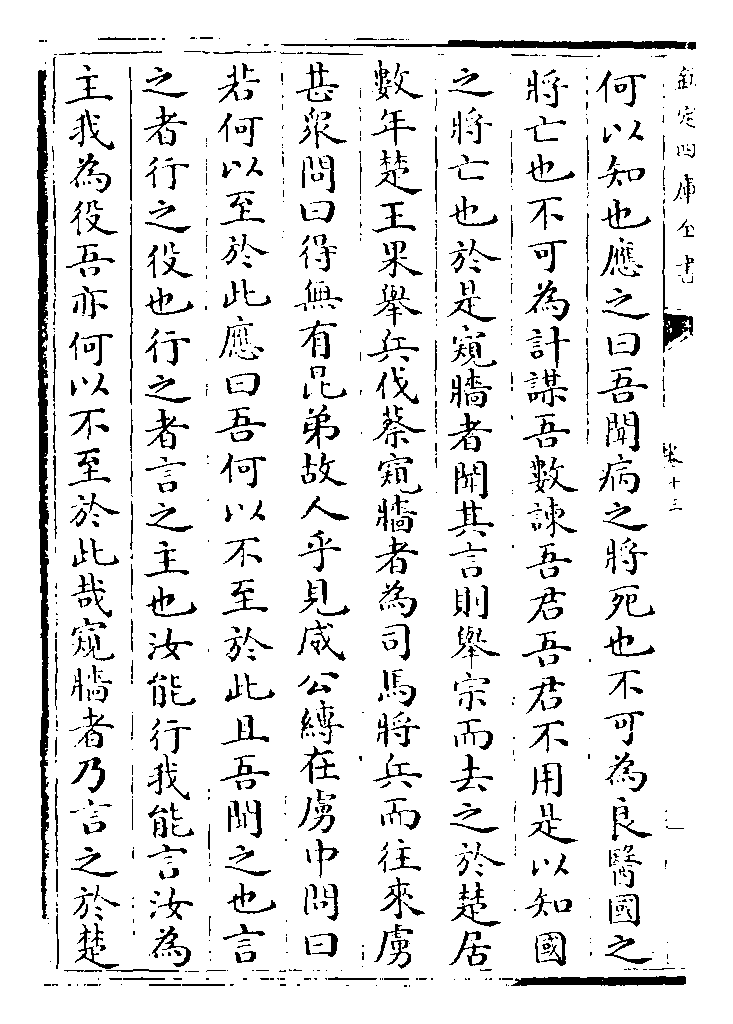 欽定四庫全書
卷十三
何以知也應之曰吾聞病之將死也不可為良醫國之
將亡也不可為計謀吾數諫吾君吾君不用是以知國
之將亡也於是窺牆者聞其言則舉宗而去之於楚居
數年楚王果舉兵伐蔡窺牆者為司馬將兵而往來虜
甚衆問曰得無有昆弟故人乎見威公縳在虜中問曰
若何以至於此應曰吾何以不至於此且吾聞之也言
之者行之役也行之者言之主也汝能行我能言汝為
主我為役吾亦何以不至於此哉窺牆者乃言之於楚